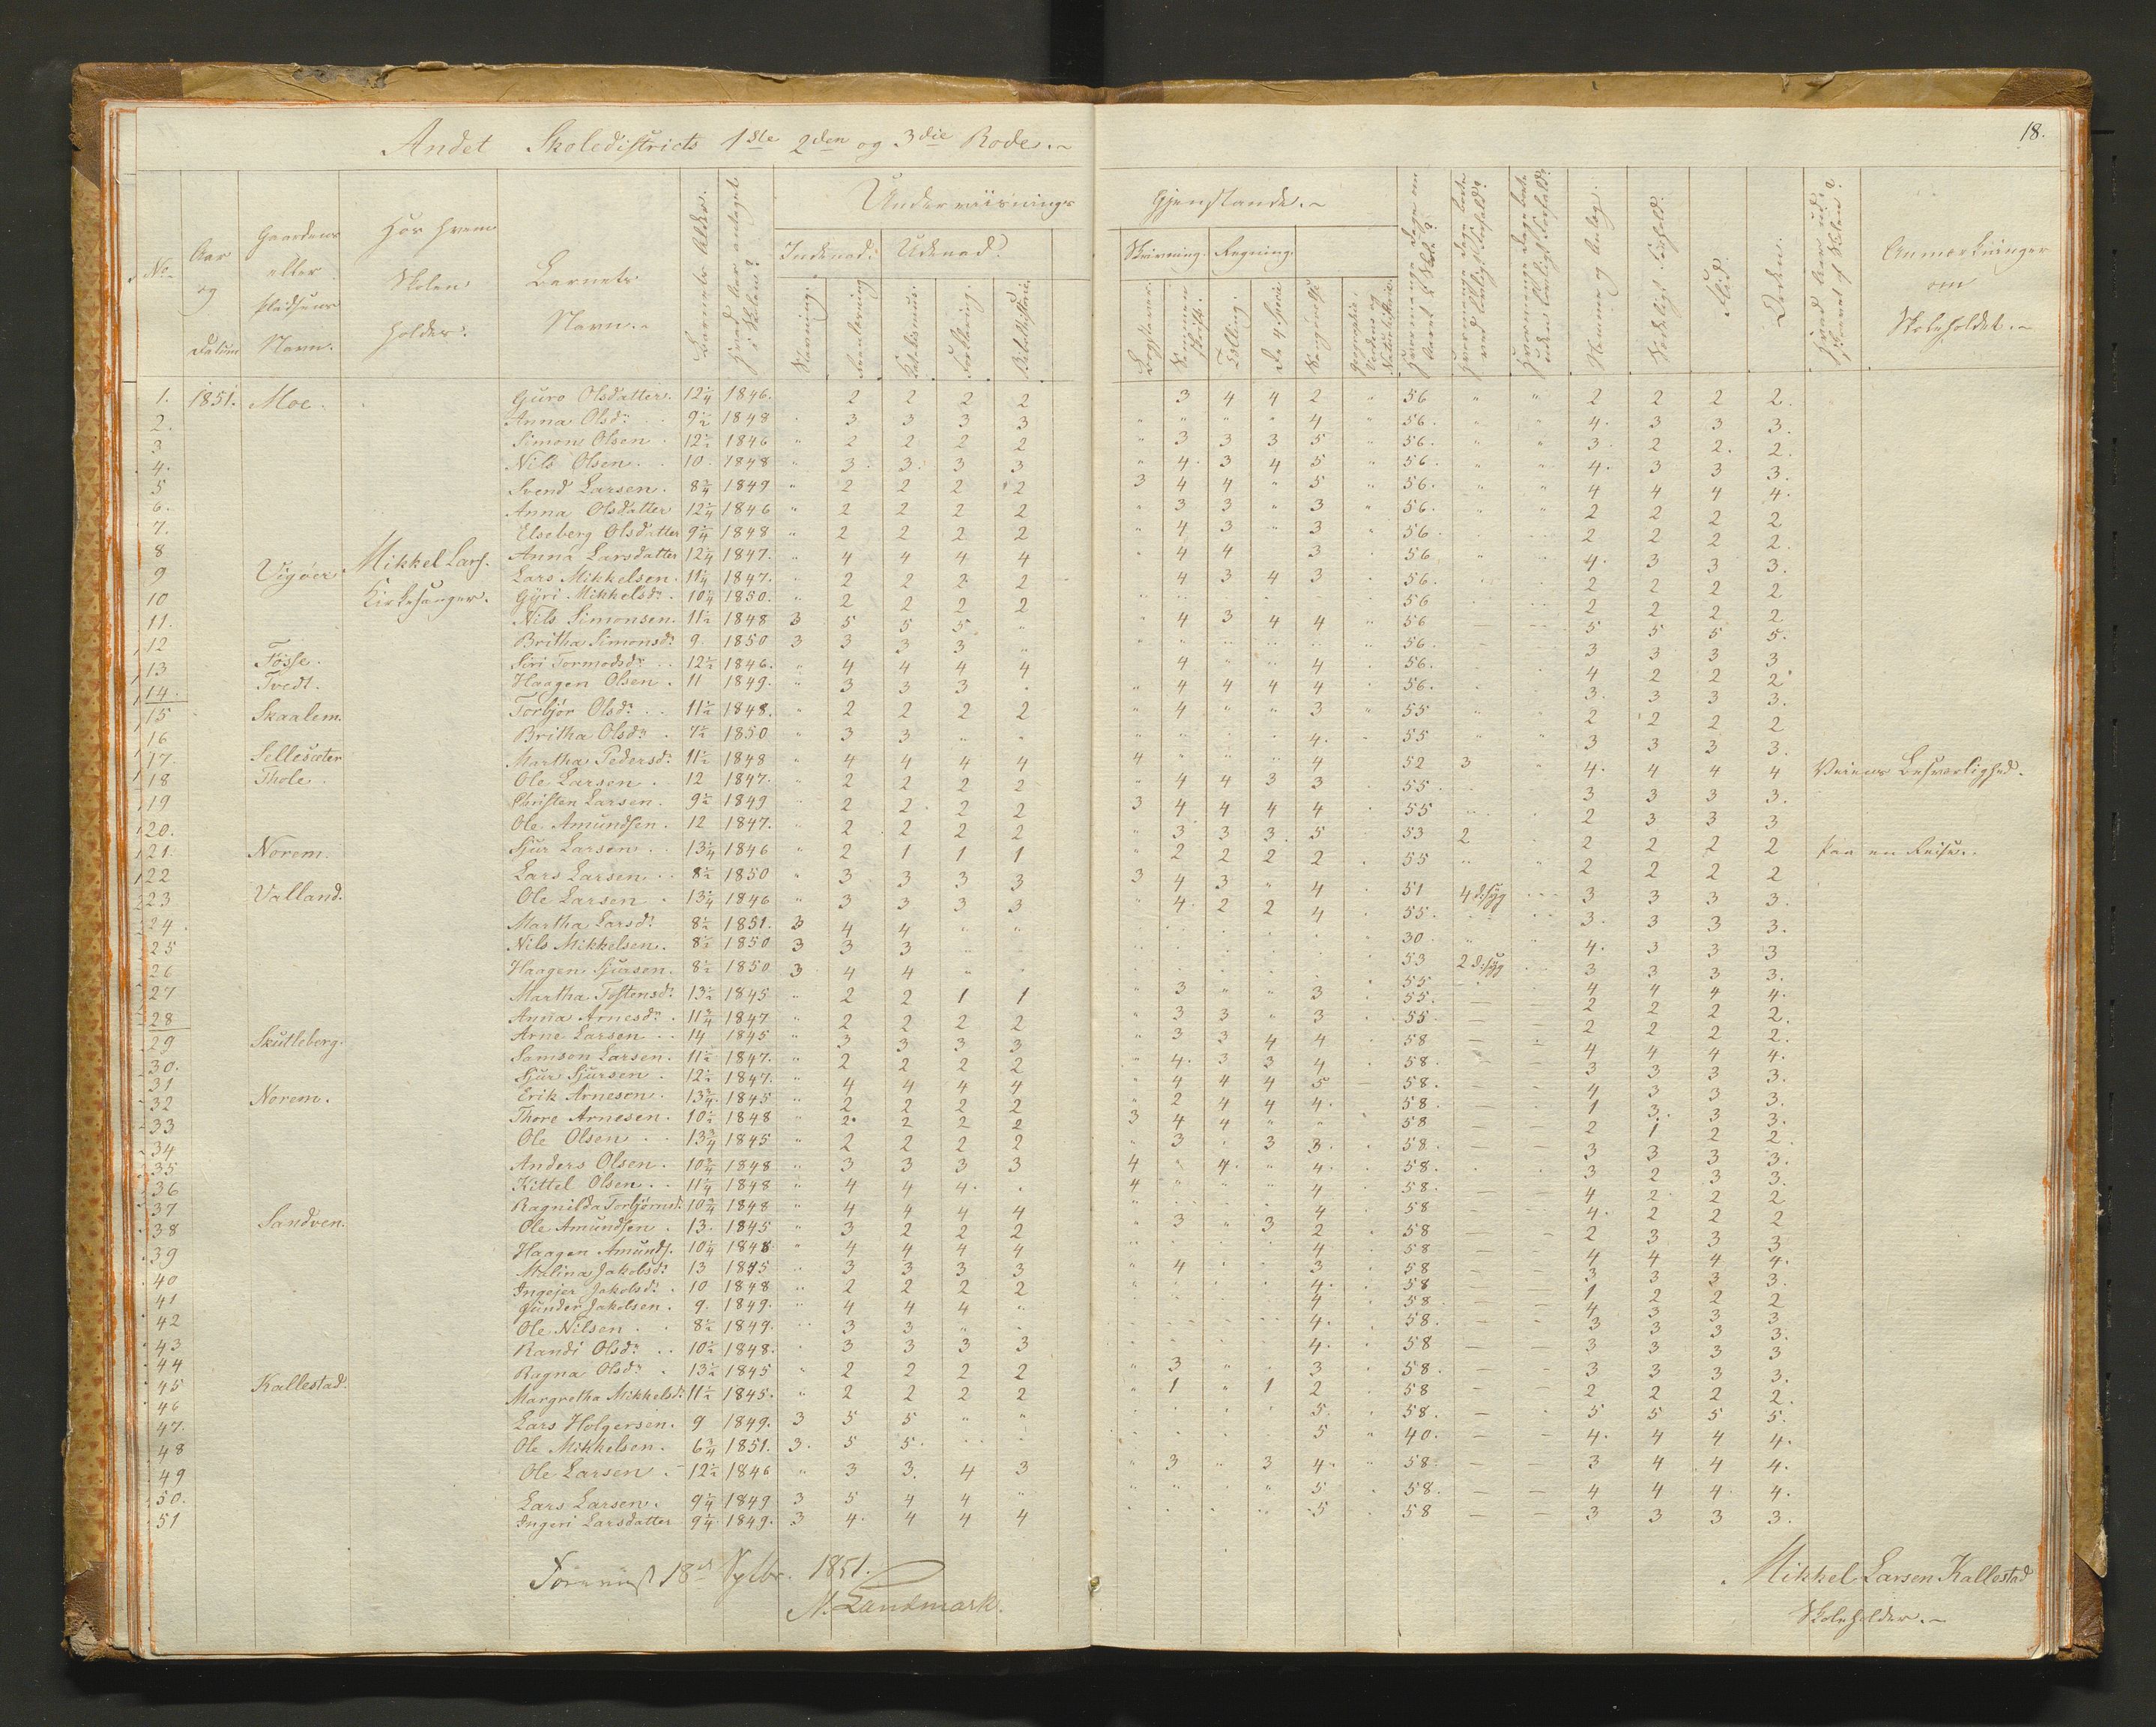 18.
Andet Skoledistricts 1ste 2den og 3die Rode.
No
Aar og Datum
Gaardens eller Pladsens Navn.
Hos hvem Skolen holdes.
Barnets Navn.
Barnets Alder.
Hvad Aar antaget i Skolen?
Underviisnings Gjenstande.
Indenad. Udenad.
Skrivning. Regning.
Anmærkninger om Skoleholdet.
1. 1851. Moe. Guro Olsdatter. 12¼ 1846. 2 2 2 2 3 4 4 2 " 56 " " 2 2 2 2.
2. Anna Olsdr 9½ 1848 3 3 3 3 " " " " 4 " 56. " " 4. 3 3 3.
3 Simon Olsen 12½ 1846 " 2 2 2 2 " 3 3 3 5 " 56. " " 3. 2 2. 2.
4. Nils Olsen 10. 1848 " 3. 3. 3 3 " 4. 3 4 5 " 56. " " 4. 3 3 3.
5 Svend Larsen. 8¾ 1849 " 2 2 2 2 3 4 4 " 5 " 56. " " 4 4 4 4.
6. Anna Olsdatter 12¼ 1846 " 2 2 2 2 " 3 3 " 3 " 56. " " 2 2 2 2
7. Elseberg Olsdatter 9¼ 1848 " 2 2 2 2 " 4 3 " 3 " 56. 2 2 2 2.
8 Anna Larsdatter 12¼ 1847. " 4 4 4 4 " 4 4 3 56 " 4. 3 3 3.
9 Vigøer Mikkel Lars. Lars Mikkelsen. 11¼ 1847. 2 2 2 2 4 3 4 3 56. 2 2 2 2
10 Kirkesanger. Gÿri Mikkelsdr. 10¼ 1850. " 2 2 2 2 56 2 2 2 2
11. Nils Simonsen. 11½ 1848 3 5 5 5 " " 4 3 4 4 " 56 5 5 5 5.
12 Britha Simonsdr 9. 1850 3 3 3 3 " 56. 3 3 3 3
13 Fosse. Siri Tormodsdr 12½ 1846. " 4 4 4 4 4 " 4 56. 4 2 2 2
14. Tvedt. Haagen Olsen. 11 1849. " 3 3 3 " 4 4 4 4 56. 3. 3 3 3.
15 Skaalem. Torbjør Olsdr 11½ 1848. " 2 2 2 2 " 4 " " 3 " 55 " 2 2 2 2
16 Britha Olsdr 7½ 1850 " 3 3 " " 4. 55 " " 3 3 3 3.
17. Sellesæter Martha Pedersdr 11½ 1848 " 4 4 4 4 4 " 4 52 3 " 4. 4 4 4 Veiens Besværlighed.
18 Thole. Ole Larsen. 12 1847. " 2 2 2 2 " 4 4 3 3 55. 3 3 3 3.
19 Christen Larsen. 9½ 1849 2 2 2 2 3 4 4 4 4 55 2 3 3 3
20. Ole Amundsen. 12 1847. 2 2 2 2 " 3 3 3 5 53 2 2 2 2 2 Paa en Reise.
21. Norem. Sjur Larsen 13¼ 1846 " 2 1 1 1 " 2 2 2 2 55 " " 2 2 2 2
22 Lars Larsen 8½ 1850 " 3 3 3 3 3 4 3 " 4 51 4 d: syg 3 3 3 3.
23 Valland. Ole Larsen 13¼ 1846 " 3 3 3 3 " 4. 2 2 4 55. 3. 3 3 3.
24. Martha Larsdr 8½ 1851. 3 4 4 " " 30 " " 4. 3 3 3
25 Nils Mikkelsen. 8½ 1850 3 3 3 53 2 d: syg 3 3 3 3.
26 Haagen Sjursen. 8½ 1850 3 4 4 55 4 4 4 4.
27 Martha Tostensdr 13½ 1845 " 2 2 1 1 " 3 " " 3 55. 2 2 2 2.
28 Anna Arnesdr 11¾ 1847. " 2 2 2 2 " 3 3 " 3 55. 2 2 2 2.
29 Skutleberg. Arne Larsen 14 1845 " 3 3 3 3 " 3 3 4 4 58 4 4 4 4.
30. Samson Larsen. 11½ 1847. " 2 2 2 2 " 4. 3 3 4 58. 3 3 3 3.
31 Sjur Sjursen 12½ 1847. " 4 4 4 4 " 4 4 4 5 58. 4 3 3 3.
32 Norem. Erik Arnesen. 13¾. 1845 " 2 2 2 2 " 2 4 4 4. 58. 1 3. 3 3.
33 Thore Arnesen. 10½ 1848 " 2 2 2 2 3 4 4 " " 58 2 1 2 2.
34 Ole Olsen 13¾ 1845 " 2 2 2 2 " 3 3 3. 58. 3 3 3 3.
35 Anders Olsen. 10¾ 1848 " 3 3 3 3 4 " 4. " 4. 58. 3 2 3 3.
36 Kittel Olsen. 11¼ 1848 " 4 4 4. 4 " 4 58. 4 2 2 2
37 Ragnilda Torbjørnsd. 10¾ 1848 " 4 4 4 4 4 58 4. 2 2 2
38 Sandven. Ole Amundsen. 13. 1845 " 3 2 2 2 " 3 " 3 2 58 2 3 3 3
39 Haagen Amunds. 10¼ 1848 " 4 4 4 4 4 58 4 4 4 4.
40 Malina Jakobsdr 13 1845 3 3 3 3 " 4 3 58 3 3 3 3.
41 Ingejer Jakobsdr. 10 1848 " 2 2 2 2 4. 58 1 2 2 2
42 Gunder Jakobsen. 9. 1849. " 4 4 4 " 4 58 4 3 3 3
43 Ole Nilsen 8½ 1849. 3 3 4. 58. 3 3 3 3.
44 Randi Olsdr 10½ 1848. 3 3 3 3 4. 58 3 3 3 3
45 Kallestad. Ragna Olsdr 13½ 1845 " 2 2 2 2 " 3 " 3 58. 3 3 3 3.
46 Margretha Mikkelsdr 11½ 1845. " 2 2 2 2 " 1 " 1 2 58 2 2 2 2.
47. Lars Holgersen. 9 1849. 3 5 5 " " 5. 58. 5 5 5 5.
48 Ole Mikkelsen. 6¾ 1851. 3. 5 5. 5 " 40. 4. 4 4 4.
49 Ole Larsen 12½ 1846 " 3 3. 4 3 " 3 " 3 4. " 58. 3 4 4 4.
50. Lars Larsen. 9¼ 1849 3 5 4 4 " " 5 58. 4 4 4 4.
51 Ingeri Larsdatter 9¼ 1849. 3 4. 4 4 4 5 58 3 3 3 3.
18d 1851.
N. Landmark.
Mikkel Larsen Kallestad
Skoleholder.